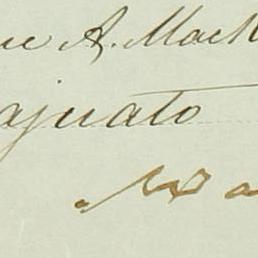 ue A. Mack
ajuato